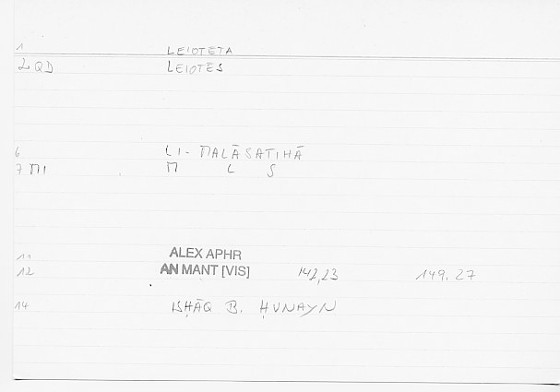 1 LEIOTETA
2 QD LEIOTES
6 LI-MALĀSATIHĀ
7 MI M L S
11 ALEX APHR
12 AN MANT [VIS] 142,23 149.27
14 ISḤĀQ B. ḤUNAYN